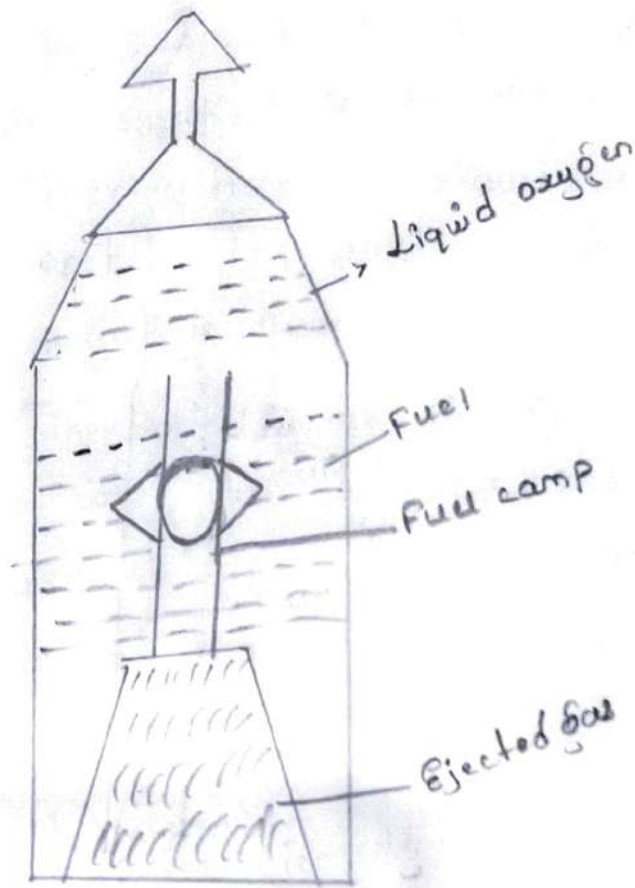 Liquid oxygen
Fuel
Fuel camp
Ejected gas